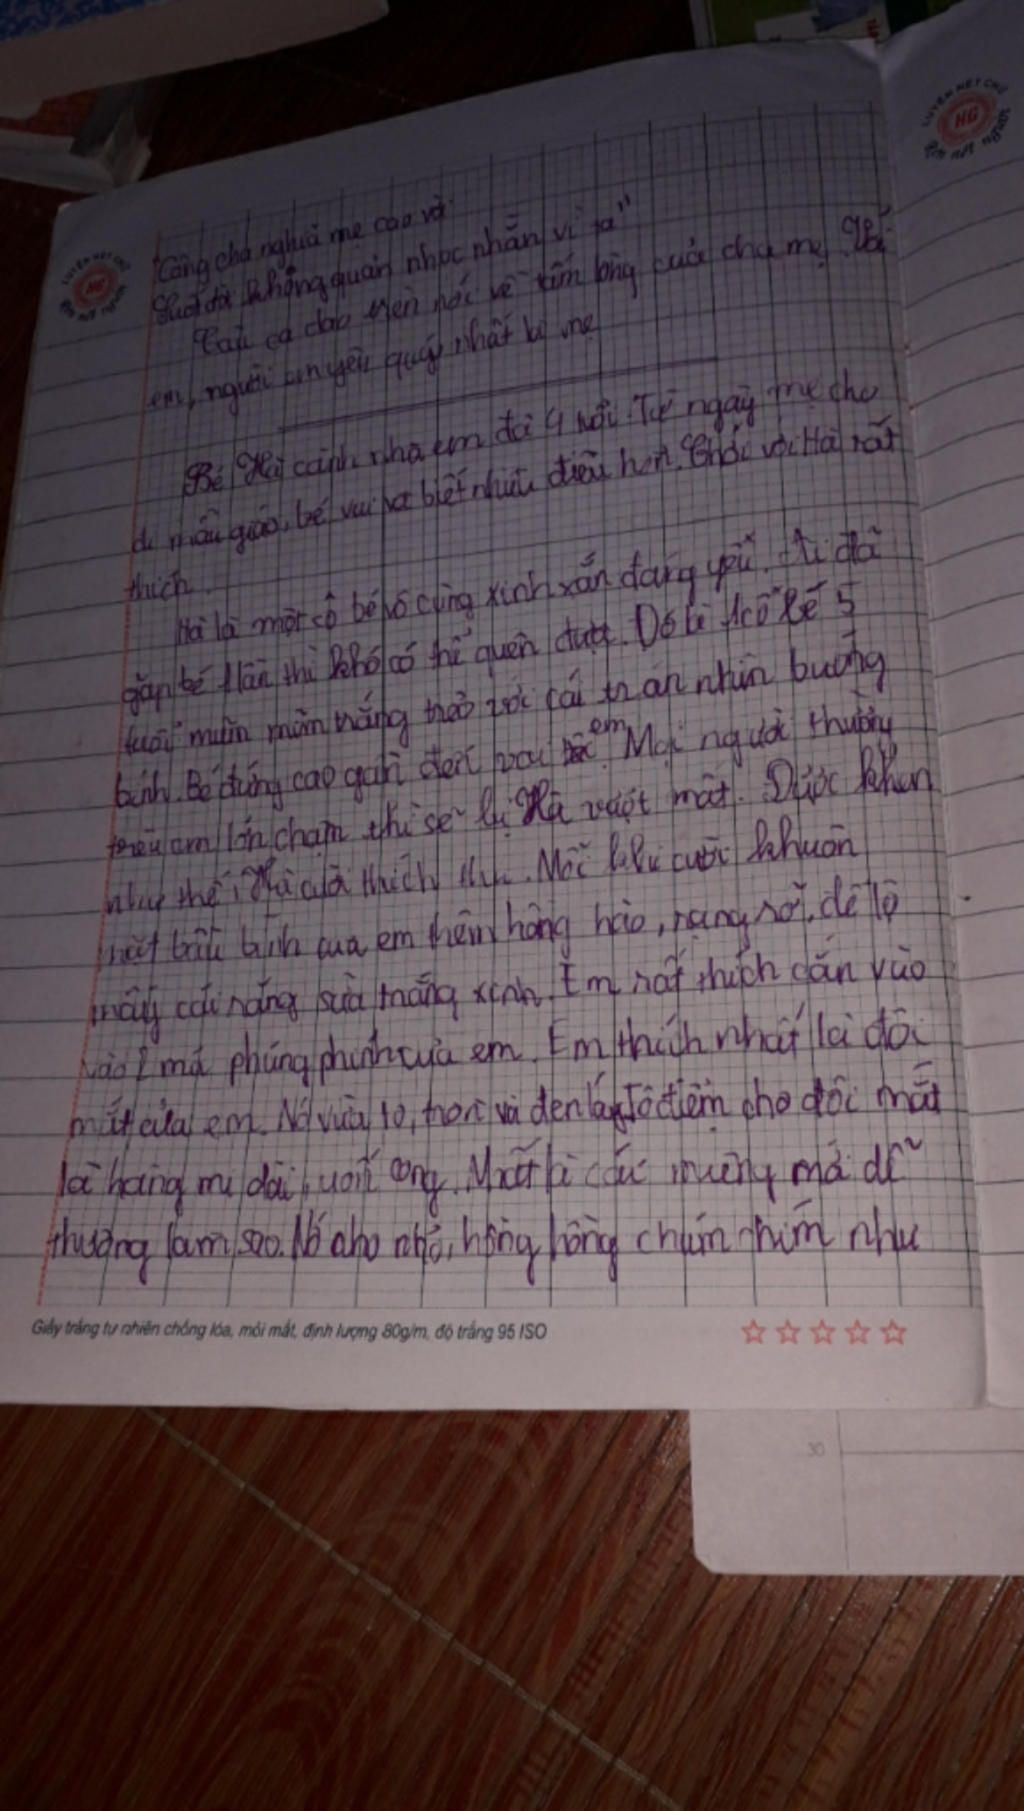 "Công cha nghĩa mẹ cao vời
Suốt đời không quản nhọc nhằn vì ta"
Câu ca dao trên nói về tấm lòng của cha mẹ. Với
em, người em yêu quý nhất là mẹ
Bé Hà cạnh nhà em đã 4 tuổi. Từ ngày mẹ cho
đi mẫu giáo, bé vui và biết nhiều điều hơn. Chơi với Hà rất
thích.
Hà là một cô bé vô cùng xinh xắn đáng yêu. Ai đã
gặp bé 1 lần thì khó có thể quên được. Đó là 1 cô bé 5
tuổi mũm mĩm trắng trẻo với cái trán nhìn bướng
bỉnh. Bé đứng cao gần đến vai em. Mọi người thường
trêu em lớn chậm thì sẽ bị Hà vượt mất. Được khen
như thế, Hà thích Mỗi khi cười khuôn
mặt bầu bĩnh của em thêm hồng hào, rạng rỡ, để lộ
mấy cái răng sữa trắng xinh. Em rất thích cắn vào
vào 2 má phúng phính của em. Em thích nhất là đôi
mắt của em. Nó vừa to, tròn và đen láy. Tô điểm cho đôi mắt
là hàng mi dài, uốn cong. Nhất là cái miệng mà dễ
thương làm sao. Nó nhỏ, hồng hồng chúm chím như
LUYỆN NÉT CHỮ
HG
RÈN NẾT NGƯỜI
LUYỆN NÉT CHỮ
HG
RÈN NẾT NGƯỜI
Giấy trắng tự nhiên chống lóa, mỏi mắt, định lượng 80g/m, độ trắng 95 ISO
30